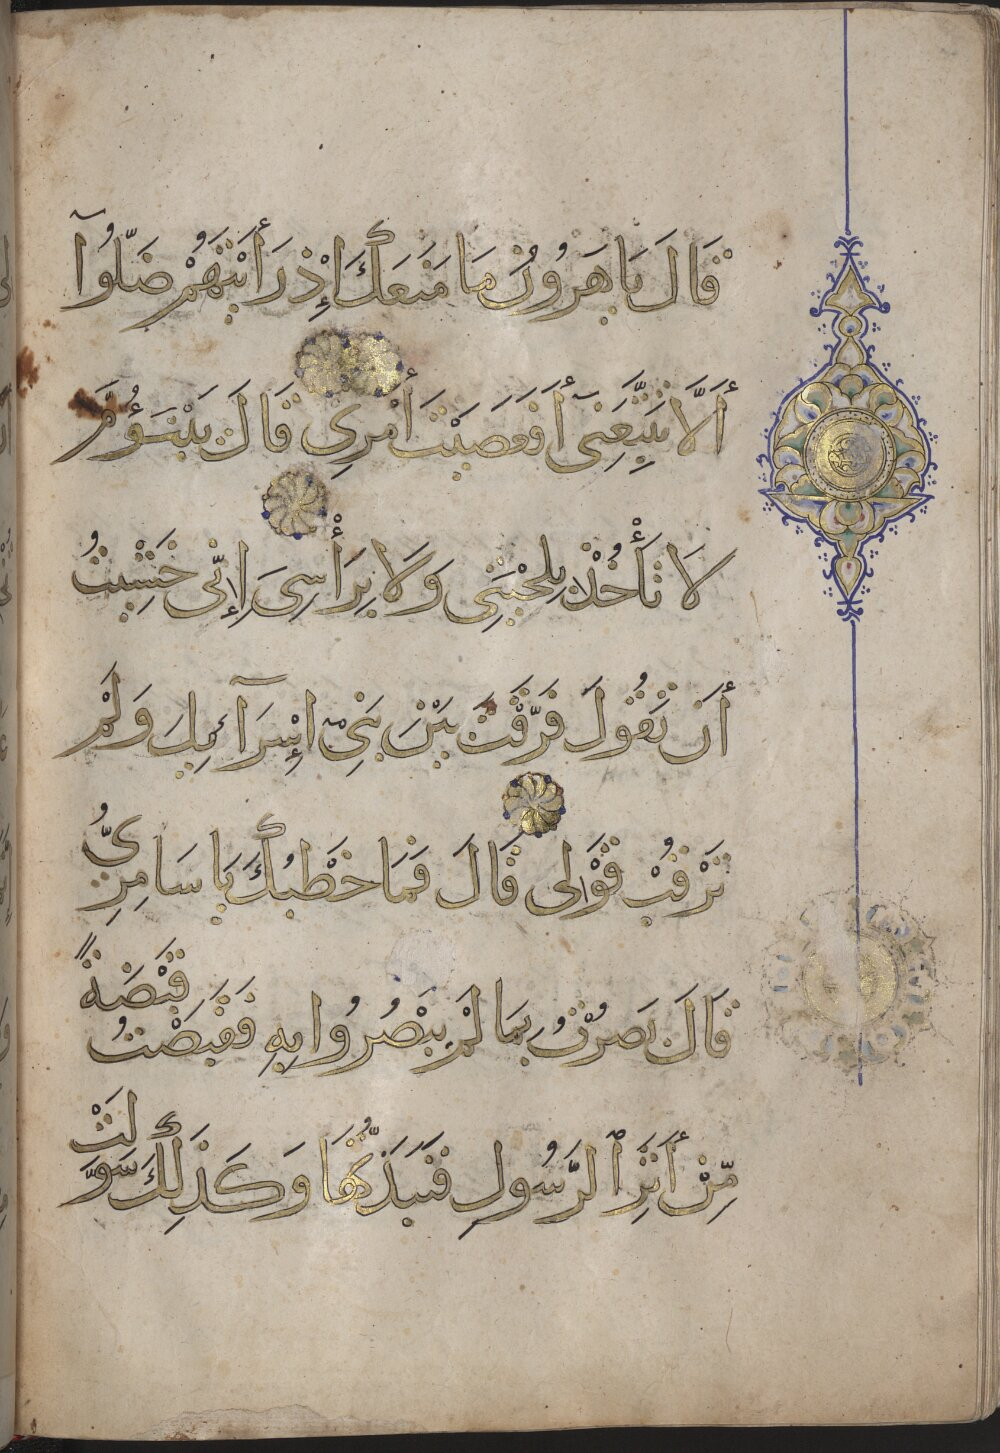 قَالَ يَا هَرُونُ مَا مَنَعَكَ إِذْ رَأَيْتَهُمْ ضَلُّوٓا
أَلَّا تَتَّبِعَنِۦٓ أَفَعَصَيْتَ أَمْرِي قَالَ يَبْنَؤُمَّ
لَا تَأْخُذْ بِلِحْيَتِي وَلَا بِرَأْسِيَ إِنِّي خَشِيتُ
أَن تَقُولَ فَرَّقْتَ بَيْنَ بَنِيٓ إِسْرَآئِيلَ وَلَمْ
تَرْقُبْ قَوْلِي قَالَ فَمَا خَطْبُكَ يَا سَامِرِيُّ
قَالَ بَصُرْتُ بِمَا لَمْ يَبْصُرُوا بِهِ فَقَبَضْتُ قَبْضَةً
مِّنْ أَثَرِ ٱلرَّسُولِ فَنَبَذْتُهَا وَكَذَلِكَ سَوَّلَتْ